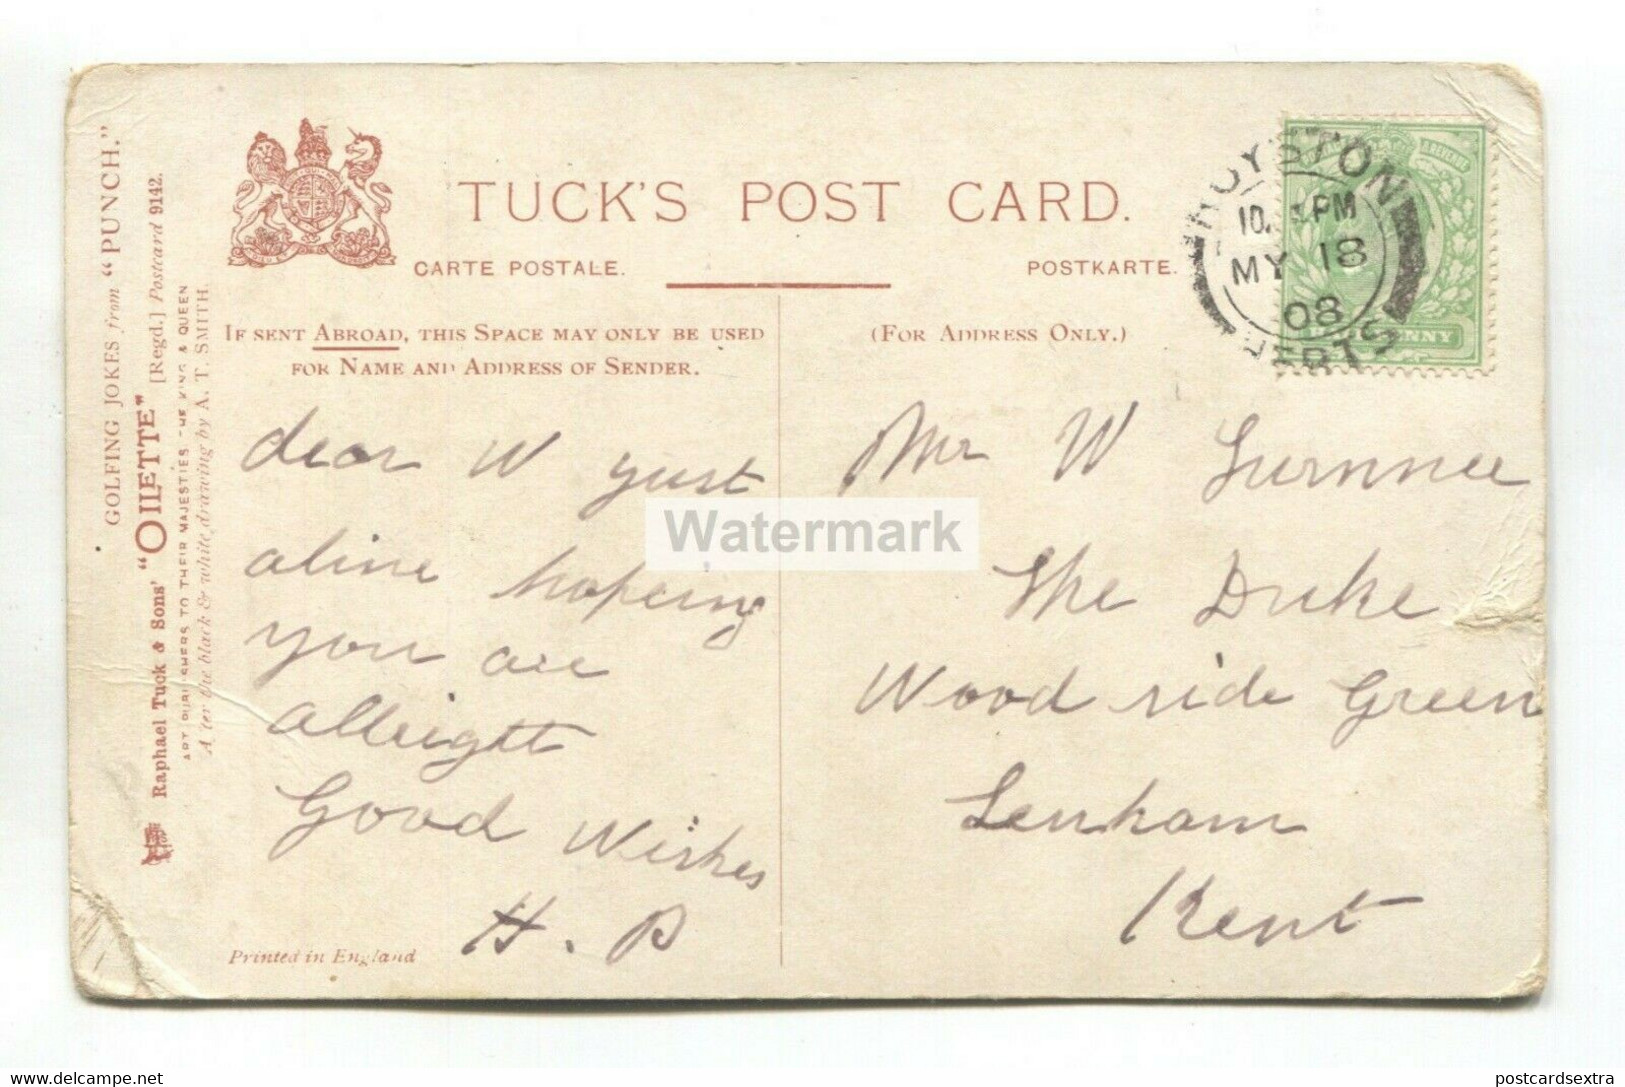 GOLFING JOKES from "PUNCH."
Raphael Tuck & Sons' "OILETTE" [Regd.] Postcard 9142.
ART PUBLISHERS TO THEIR MAJESTIES THE KING & QUEEN
After the black & white drawing by A. T. SMITH.
TUCK'S POST CARD.
CARTE POSTALE.
POSTKARTE.
IF SENT ABROAD, THIS SPACE MAY ONLY BE USED
FOR NAME AND ADDRESS OF SENDER.
(FOR ADDRESS ONLY.)
ROYSTON
PM
MY 18
08
HERTS
dear W yust
aline hopeing
you are
allrightt
Good Wishes
H. B
Mr W
The Duke
Wood side Green
Lenham
Kent
Printed in England
Watermark
delcampe.net
postcardsextra